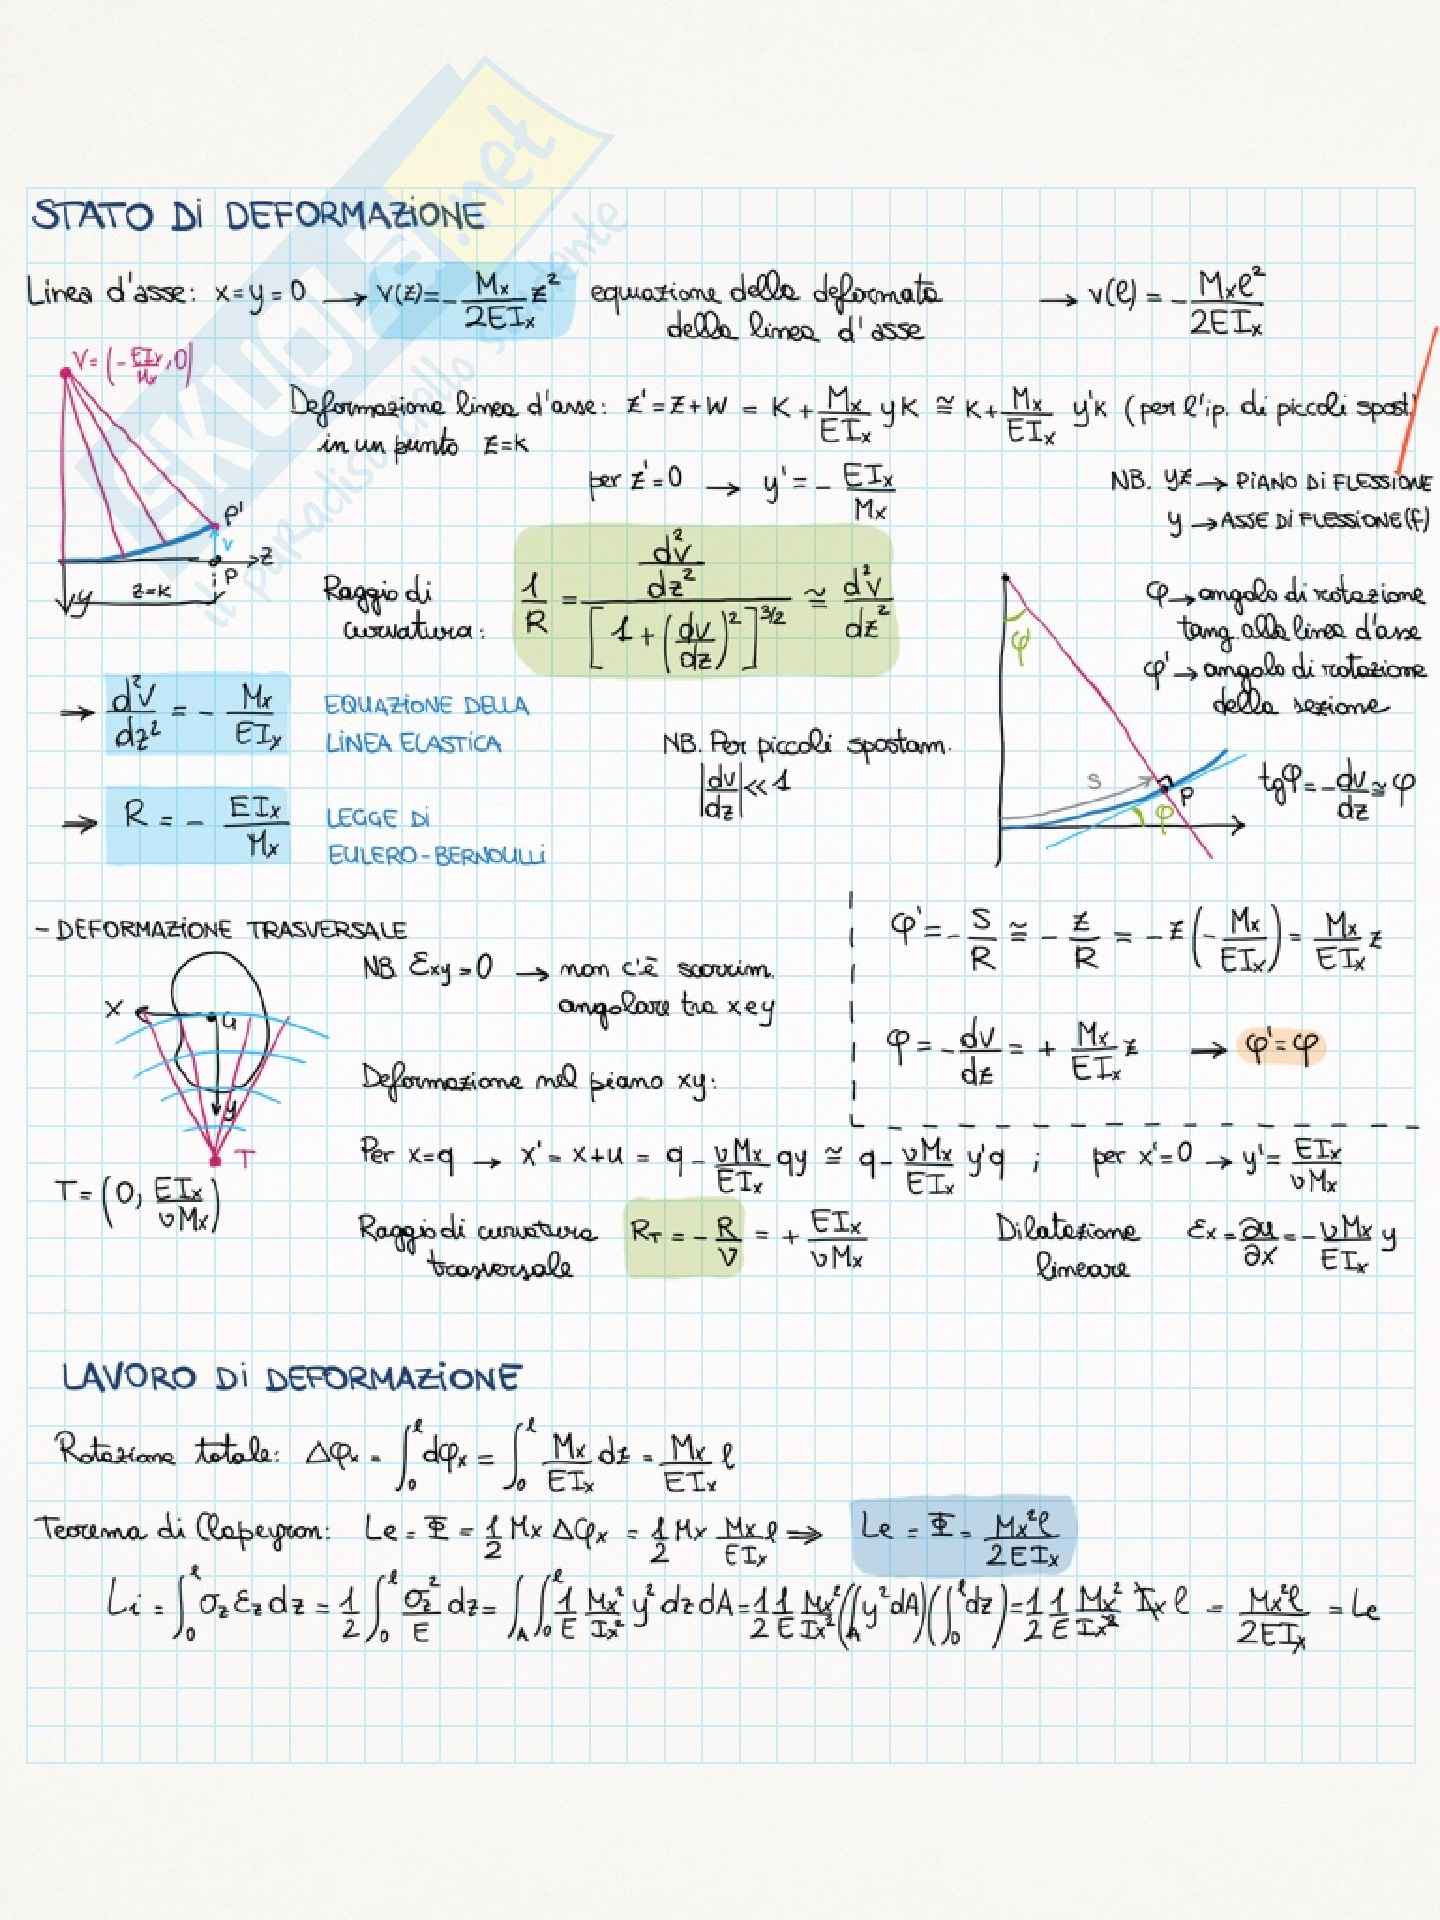 SKUOLA.net
il paradiso dello studente
STATO DI DEFORMAZIONE
Linea d'asse: x=y=0 → v(z)=-Mx/2EIx z² equazione della deformata → v(ℓ) = -Mxℓ²/2EIx
della linea d'asse
V=(-EIx/Mx,0)
Deformazione linea d'asse: z'=z+w = K+Mx/EIx yK ≅ K+Mx/EIx y'K (per l'ip. di piccoli spost)
in un punto z=K
per z'=0 → y'=-EIx/Mx
NB. yz → PIANO DI FLESSIONE
y → ASSE DI FLESSIONE (f)
P'
v
z
P
z=K
y
Raggio di
curvatura:
1/R = d²v/dz² / [1+(dv/dz)²]^3/2 ≅ d²v/dz²
φ
φ → angolo di rotazione
tang. alla linea d'asse
φ' → angolo di rotazione
della sezione
→ d²v/dz² = -Mx/EIx EQUAZIONE DELLA
LINEA ELASTICA
NB. Per piccoli spostam.
|dv/dz| ≪ 1
S
P
φ
tgφ=-dv/dz≅φ
→ R = -EIx/Mx LEGGE DI
EULERO-BERNOULLI
- DEFORMAZIONE TRASVERSALE
NB. Ɛxy=0 → non c'è scorrim.
angolare tra x e y
φ'=-S/R ≅ -z/R = -z(-Mx/EIx) = Mx/EIx z
X
G
y
T
Deformazione nel piano xy:
φ=-dv/dz = + Mx/EIx z → φ'=φ
Per x=q → x'=x+u = q-νMx/EIx qy ≅ q-νMx/EIx y'q ; per x'=0 → y'=EIx/νMx
T=(0, EIx/νMx)
Raggio di curvatura
trasversale
R_T = -R/ν = + EIx/νMx
Dilatazione
lineare
Ɛx=∂u/∂x=-νMx/EIx y
LAVORO DI DEFORMAZIONE
Rotazione totale: Δφx = ∫₀^ℓ dφx = ∫₀^ℓ Mx/EIx dz = Mx/EIx ℓ
Teorema di Clapeyron: Le = Φ = 1/2 Mx Δφx = 1/2 Mx Mx/EIx ℓ ⇒ Le = Φ = Mx²ℓ/2EIx
Li = ∫₀^ℓ σz Ɛz dz = 1/2 ∫₀^ℓ σz²/E dz = ∫_A ∫₀^ℓ 1/E Mx²/Ix² y² dz dA = 1/2 1/E Mx²/Ix² (∫_A y² dA)(∫₀^ℓ dz) = 1/2 1/E Mx²/Ix² Ix ℓ = Mx²ℓ/2EIx = Le